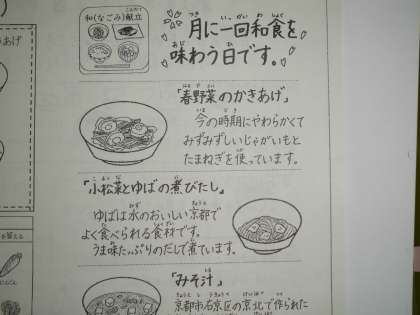 和(なごみ)献立
月に一回和食を
味わう日です。
「春野菜のかきあげ」
今の時期にやわらかくて
みずみずしいじゃがいもと
たまねぎを使っています。
「小松菜とゆばの煮びたし」
ゆばは水のおいしい京都で
よく食べられる食材です。
うま味たっぷりのだしで煮ています。
「みそ汁」
京都市右京区の京北で作られた
きあげ